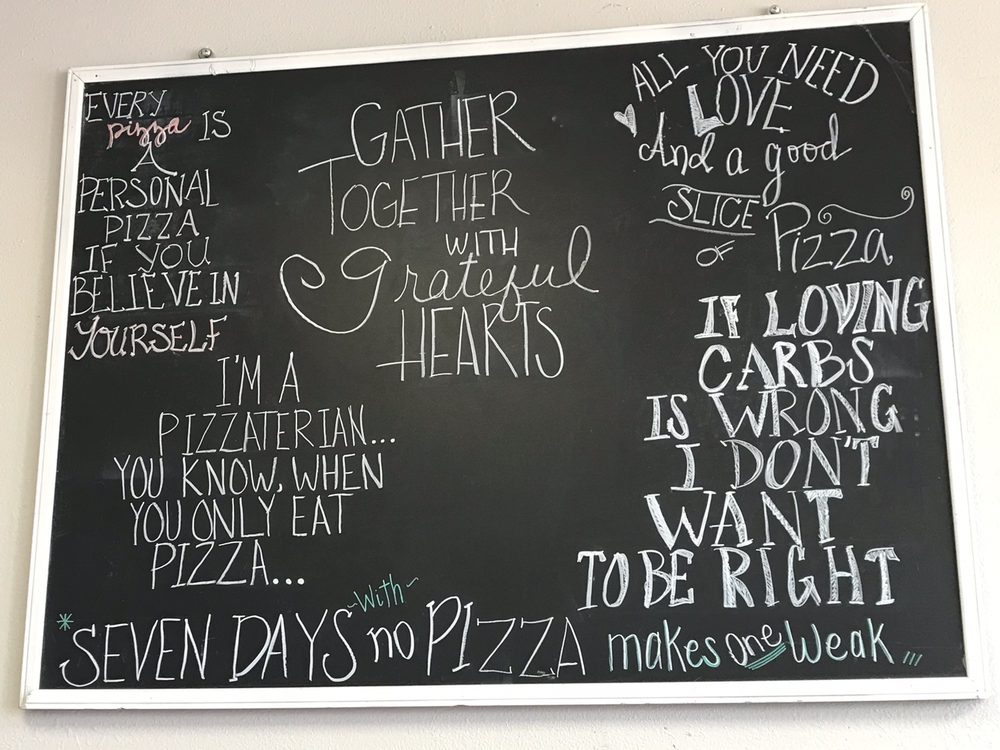 EVERY
pizza IS
A
PERSONAL
PIZZA
IF YOU
BELIEVE IN
YOURSELF
GATHER
TOGETHER
WITH
grateful
HEARTS
ALL YOU NEED
LOVE
And a good
SLICE
OF Pizza
I'M A
PIZZATERIAN...
YOU KNOW, WHEN
YOU ONLY EAT
PIZZA...
IF LOVING
CARBS
IS WRONG
I DON'T
WANT
TO BE RIGHT
*SEVEN DAYS ~With~ no PIZZA makes one Weak...